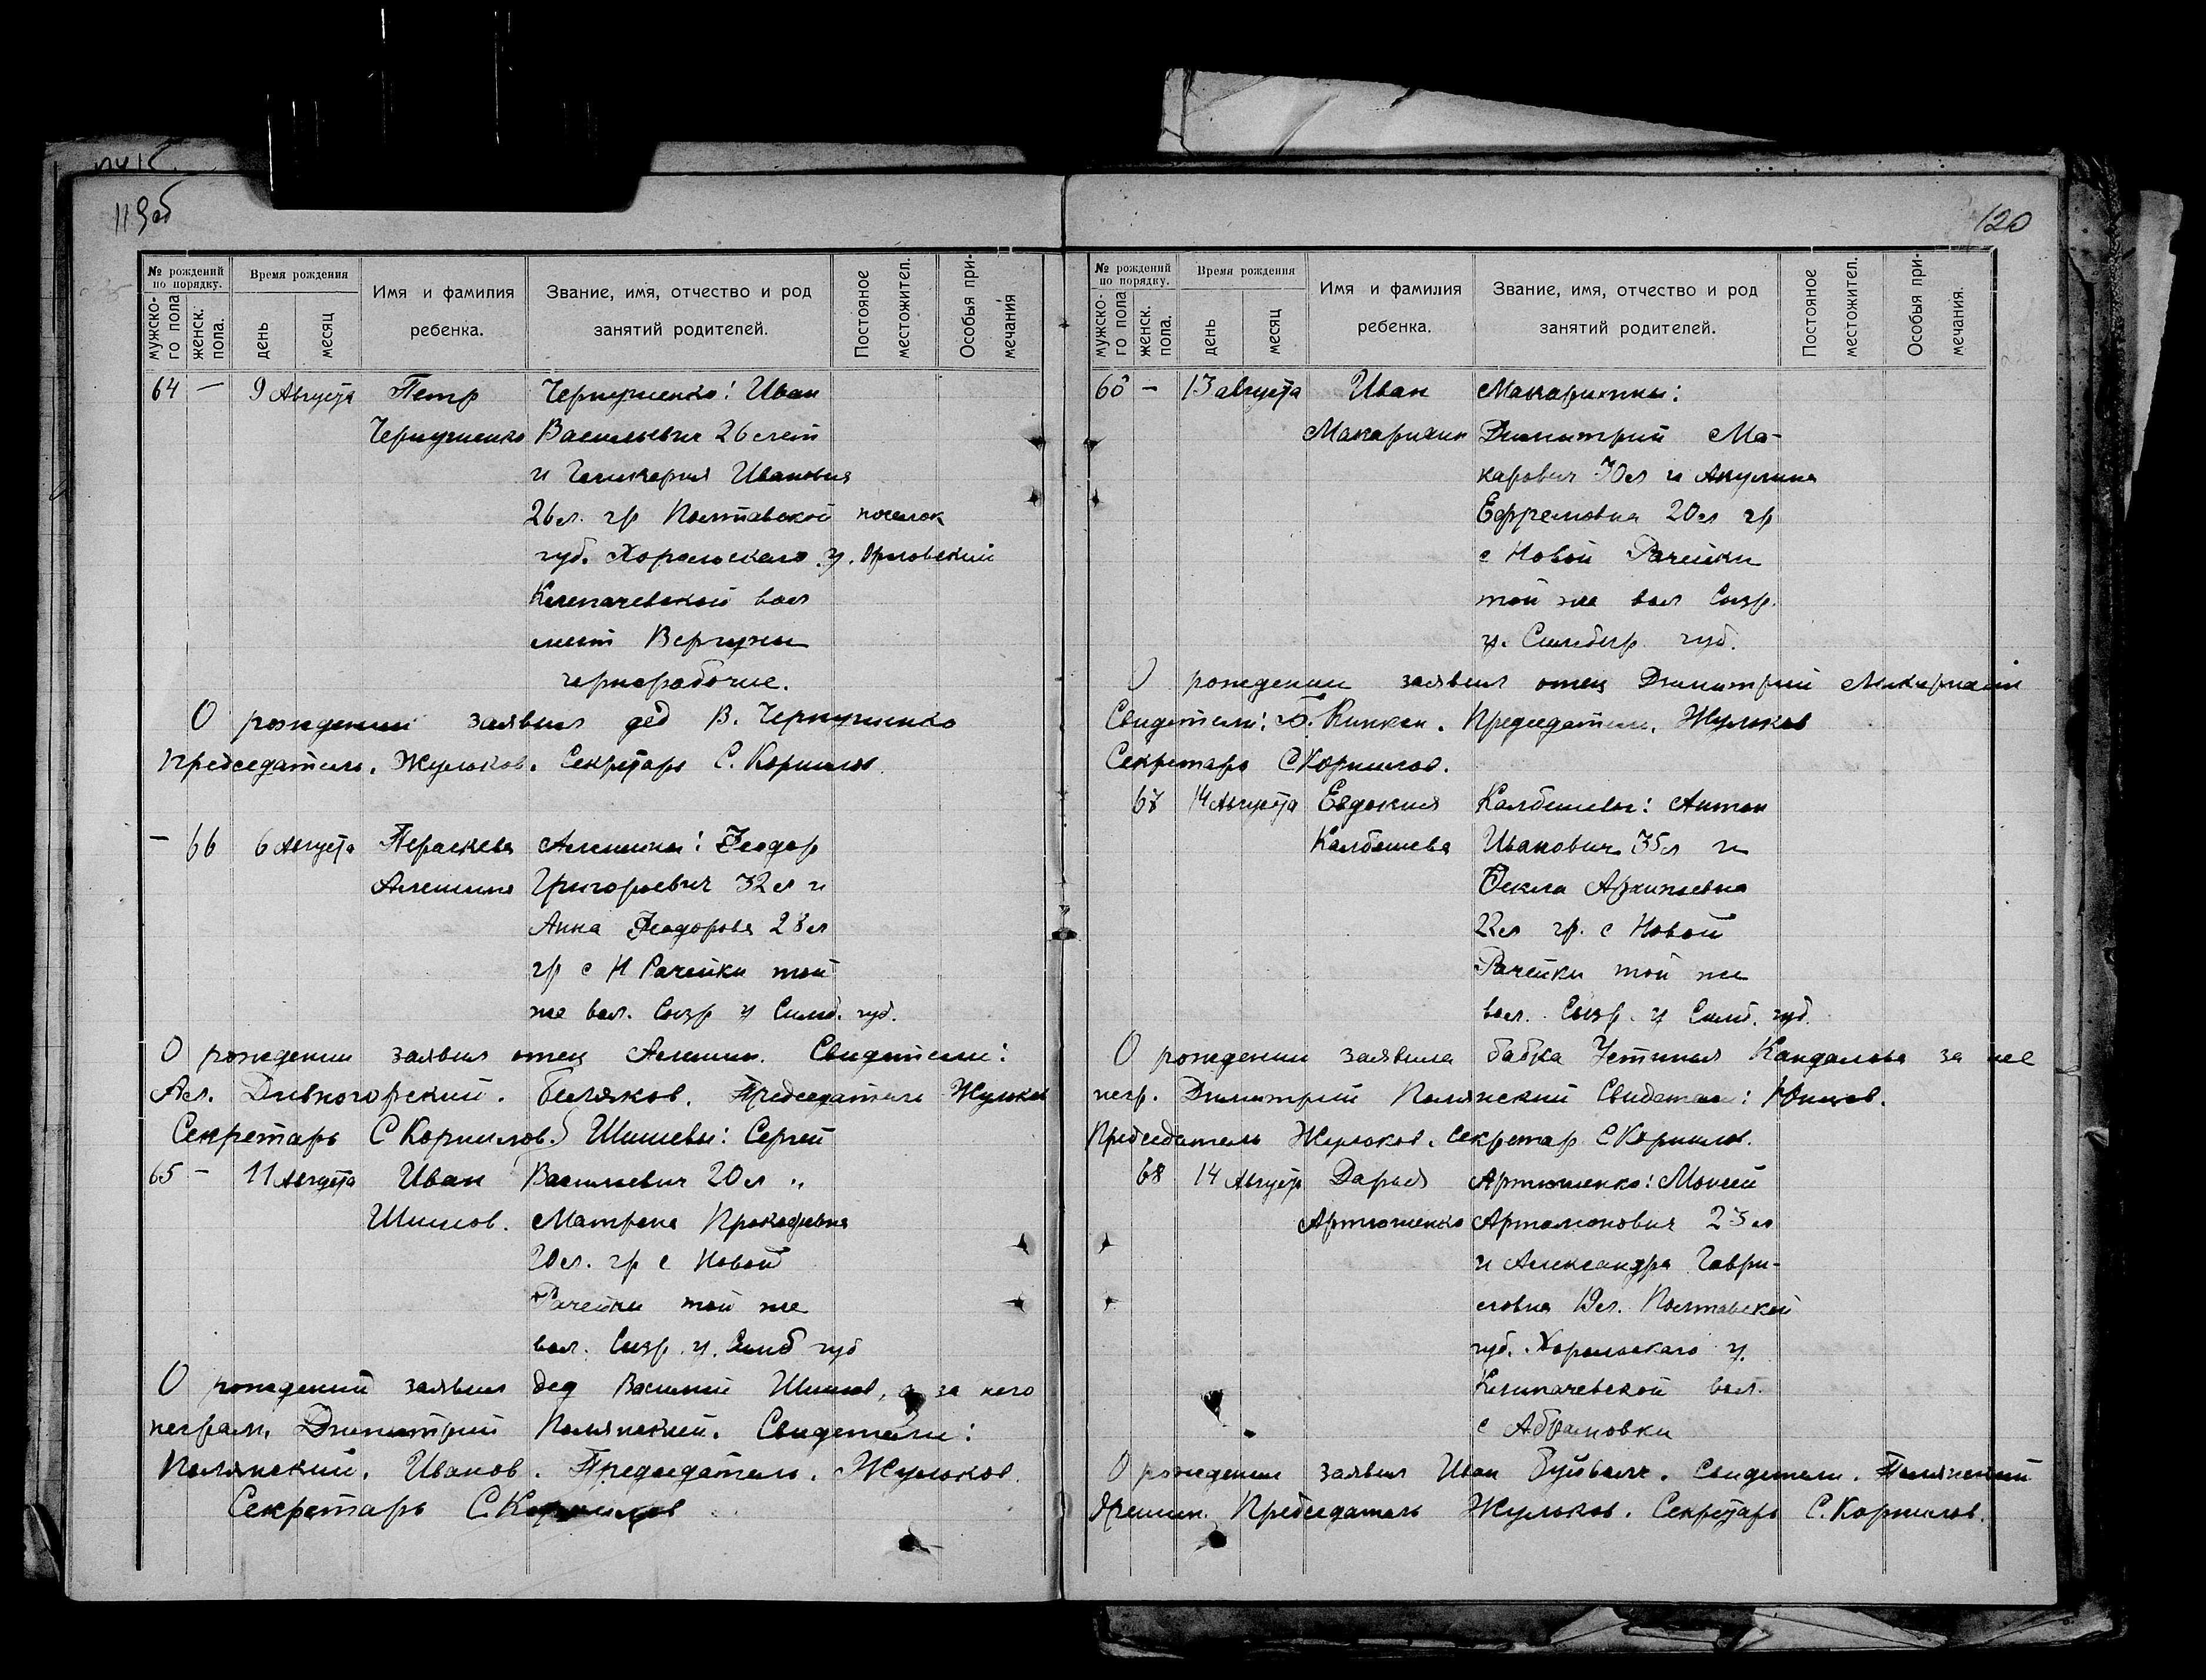 119об
№ рождений по порядку.
мужско-го пола
женск. пола.
Время рождения
день
месяц
Имя и фамилия ребенка.
Звание, имя, отчество и род занятий родителей.
Постоянное местожител.
Особыя при-мечания
64 — 9 Августа Петр Чернушенко: Иван
Чернушенко Васильевич 26 лет
и Гликерия Ивановна
26 л. гр Полтавской поселок
губ. Хорольскаго у. Орловский
Клепачевской вол
мест Вергуны
чернорабочие.
О рождении заявил дед В. Чернушенко
Председатель. Жульков. Секретарь С. Корнилов
— 66 6 Августа Параскева Алешины: Феодор
Алешина Григорьевич 32 л и
Анна Феодоровa 28 л
гр с Н Рачейки той
же вол. Сызр у Симб. губ.
О рождении заявил отец Алешин. Свидетели:
Ал. Дивногорский. Беляков. Председатель Жульков
Секретарь С Корнилов.) Шишовы: Сергей
65 — 11 Августа Иван Васильевич 20 л "
Шишов. Матрена Прокофьевна
20 л. гр с Новой
Рачейки той же
вол. Сызр. у. Симб губ
О рождений заявил дед Василий Шишов, а за него
неграм. Димитрий Полянский. Свидетели:
Полянский. Иванов. Председатель. Жульков.
Секретарь С. Корнилов
120
№ рождений по порядку.
мужско-го пола
женск. пола.
Время рождения
день
месяц
Имя и фамилия ребенка.
Звание, имя, отчество и род занятий родителей.
Постоянное местожител.
Особыя при-мечания.
66 — 13 августа Иван Макарихины:
Макарихин Димитрий Ма-
карович 30 л и Акулина
Ефремовна 20 л гр
с Новой Рачейки
той же вол Сызр.
у. Симбир. губ.
О рождении заявил отец Димитрий Макарихин
Свидетели: Кипкен. Председатель. Жульков
Секретарь С Корнилов.
67 14 Августа Евдокия Калбашевы: Антон
Калбашева Иванович 35 л и
Фекла Архиповна
22 л гр. с Новой
Рачейки той же
вол. Сызр. у Симб. губ.
О рождении заявила бабка Устиния Кандалова за нее
негр. Димитрий Полянский Свидетели:
Председатель Жульков. Секретар С Корнилов.
68 14 Августа Дарья Артюшенко: Моисей
Артюшенко Артамонович 23 л
и Александра Гаври-
ловна 19 л. Полтавской
губ. Хорольскаго у.
Клепачевской вол.
с Абрамовки
О рождении заявил Иван Буйвал. Свидетели. Полянский
Председатель Жульков. Секретарь С. Корнилов.